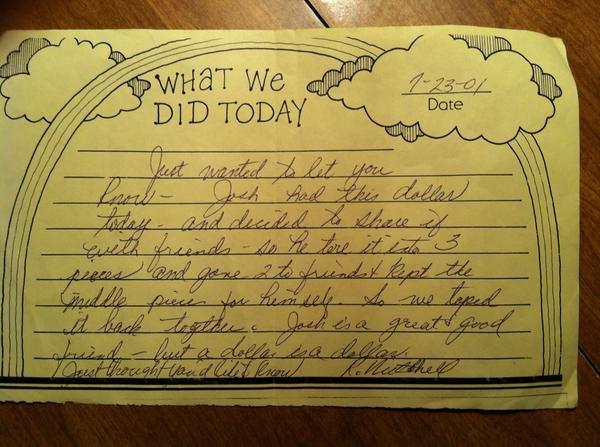 WHAT WE
DID TODAY
7-23-01
Date
Just wanted to let you
know - Josh had this dollar
today - and decided to share if
with friends - so he tore it into 3
pieces and gave 2 to friends & kept the
middle piece for himself. So we taped
it back together. Josh is a great & good
friend - but a dollar is a dollar.
(Just thought you'd like to know